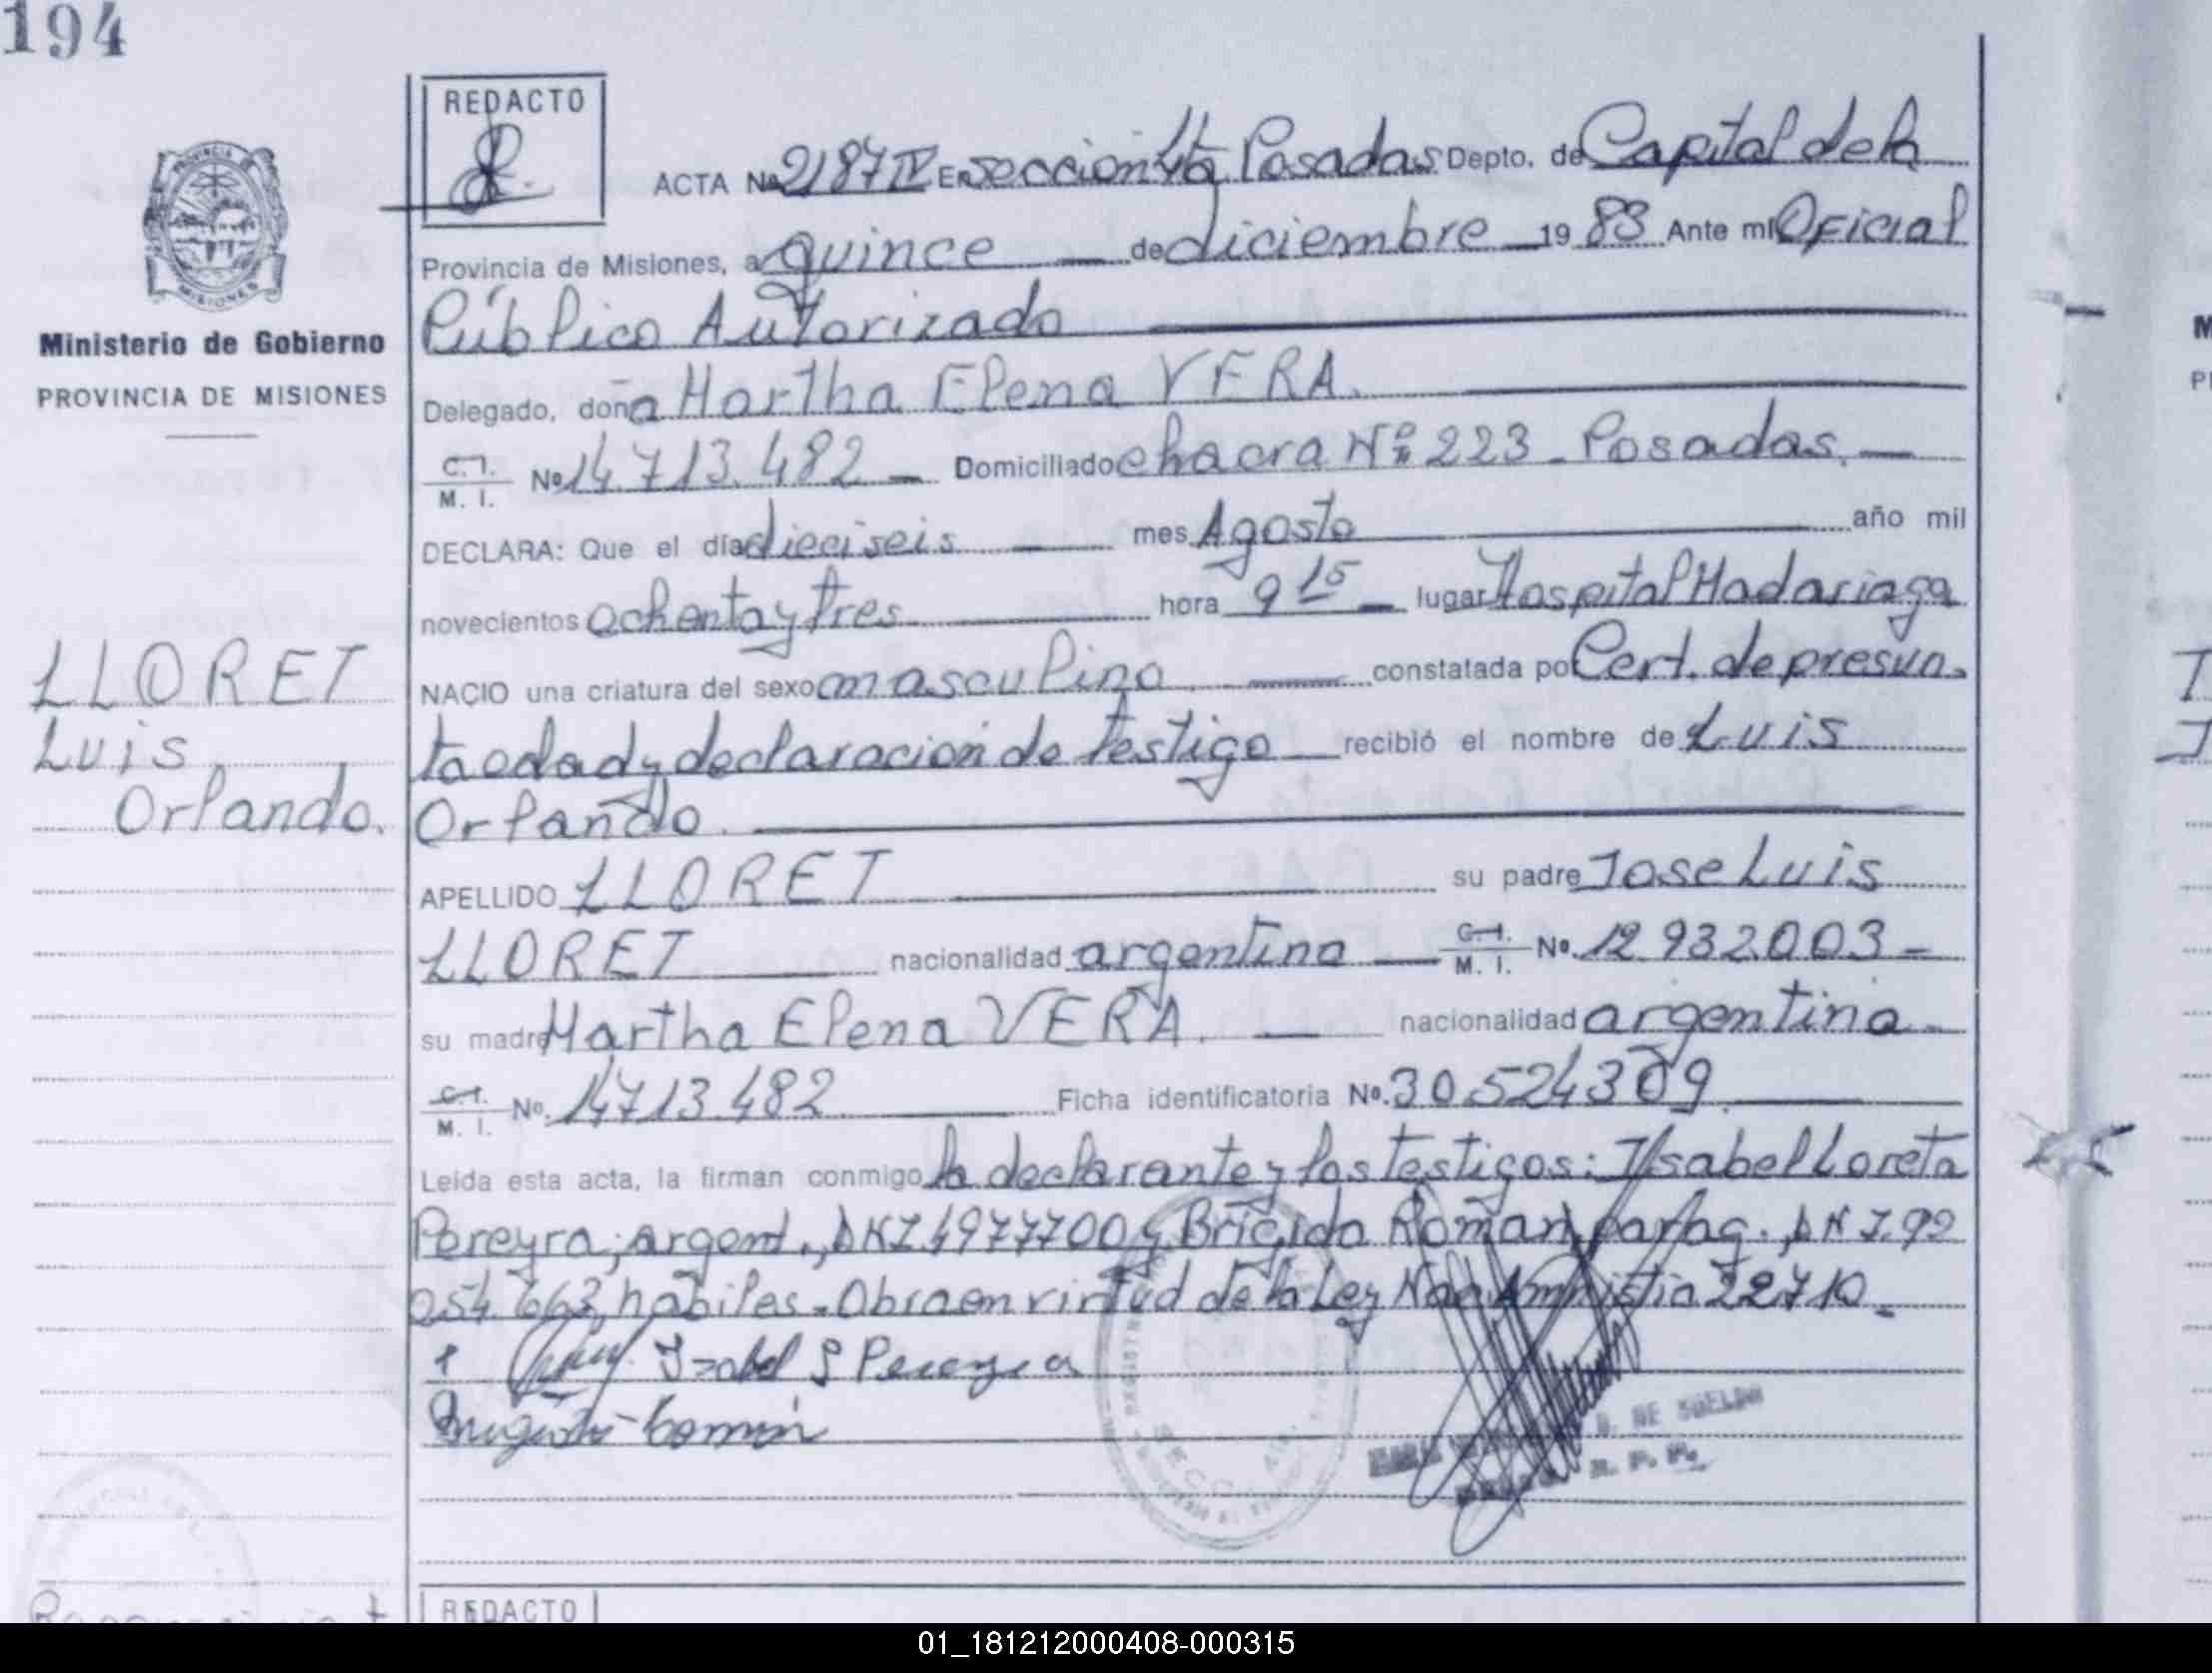 194
REDACTO
ACTA Nº 2187 IV En sección 4ta Posadas Depto. de Capital de la
Provincia de Misiones, a quince de diciembre 19 83 Ante mi Oficial
Público Autorizado
Ministerio de Gobierno
PROVINCIA DE MISIONES
Delegado, doña Martha Elena VERA.
C.I. M. I. Nº 14.713.482 - Domiciliado chacra Nº 223 - Posadas.
DECLARA: Que el día dieciseis mes Agosto año mil
novecientos ochenta y tres hora 9 15 lugar Hospital Madariaga
NACIO una criatura del sexo masculino constatada por Cert. de presun-
ta edad y declaracion de testigo recibió el nombre de Luis
Orlando.
LLORET
Luis
Orlando.
APELLIDO LLORET su padre Jose Luis
LLORET nacionalidad argentina C.I. M. I. Nº. 12.932.003 -
su madre Martha Elena VERA. nacionalidad argentina
C.I. M. I. Nº. 14713.482 Ficha identificatoria Nº. 30524309.
Leída esta acta, la firman conmigo la declarante y los testigos: Ysabel Loreta
Pereyra, argent., DNI 4977700 y Brigida Roman, parag., DNI. 92
054.663, habiles. Obra en virtud de la Ley Nac Amnistia 22710.
Izabel L Pereyra
D. DE
PROVINCIA DE
MISIONES
REDACTO
01_181212000408-000315